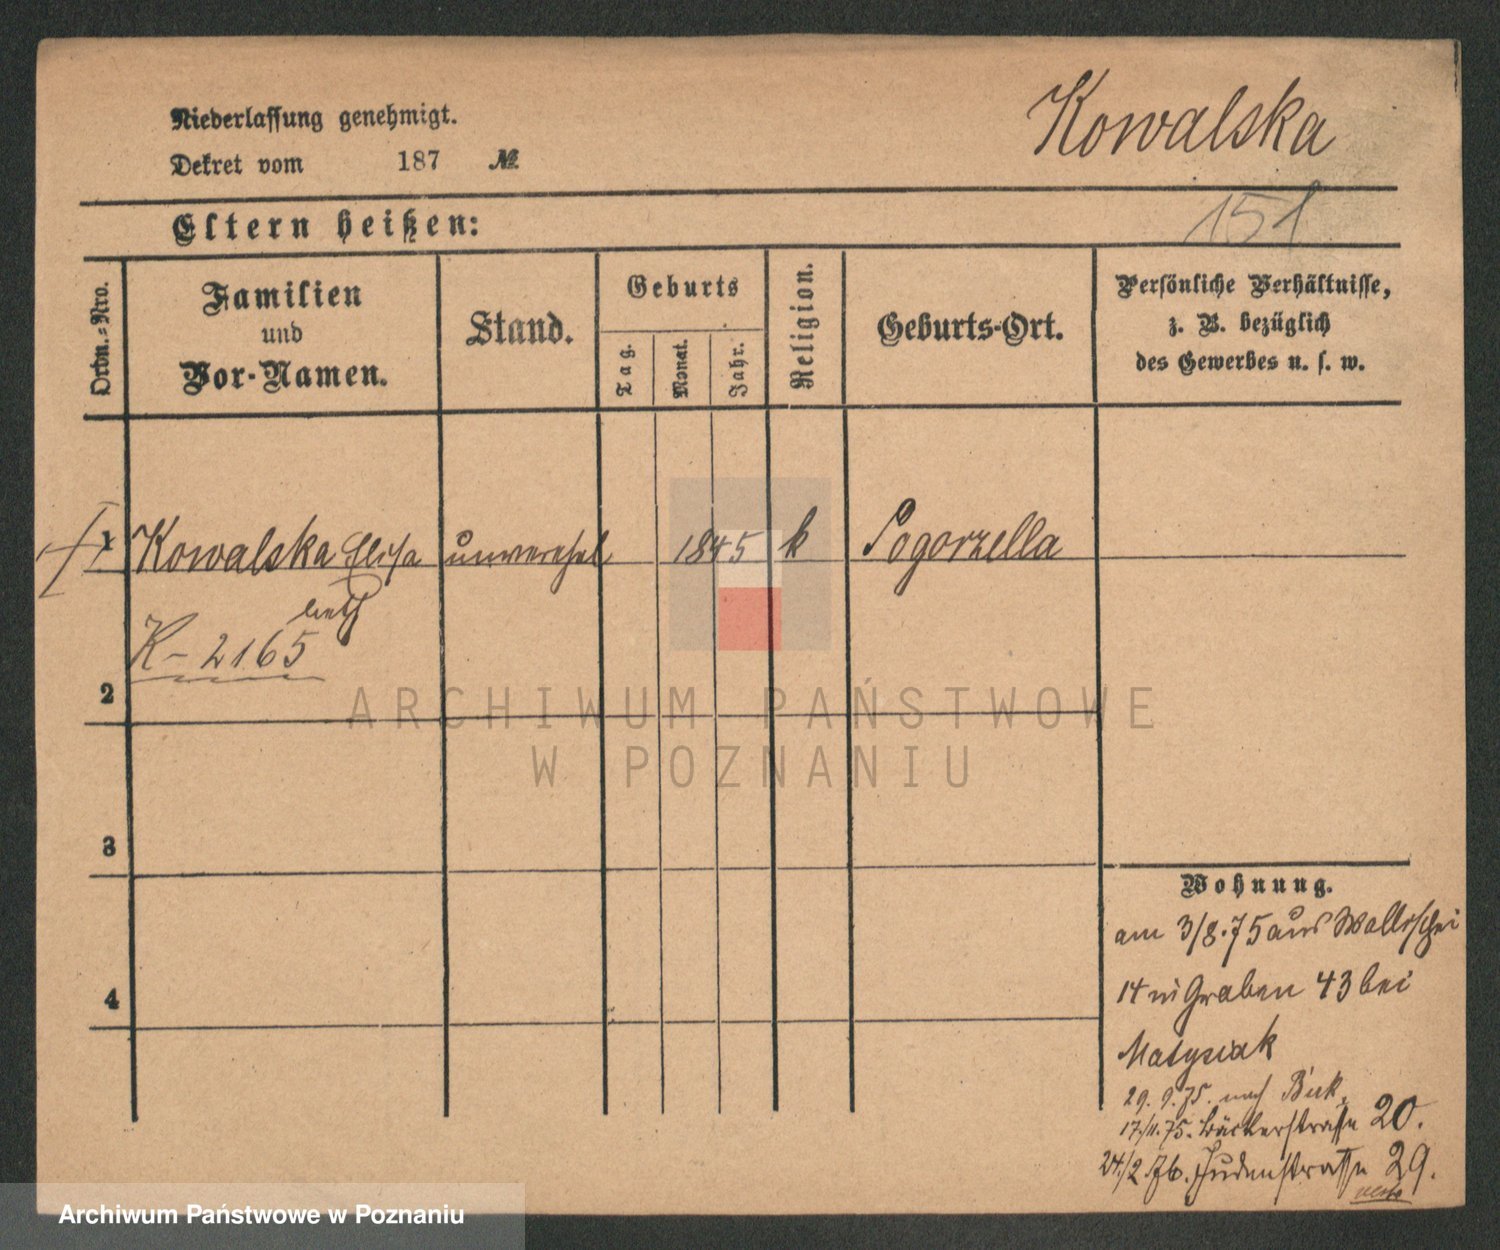 Kowalska
Niederlassung genehmigt.
Dekret vom 187 №
151
Eltern heißen:
Ordn.=Nro.
Familien
und
Vor-Namen.
Stand.
Geburts
Tag.
Monat.
Jahr.
Religion.
Geburts-Ort.
Persönliche Verhältnisse,
z. B. bezüglich
des Gewerbes u. s. w.
1 Kowalska Elisa unverehel 1845 k Pogorzella
beth
K-2165
2
3
4
ARCHIWUM PAŃSTWOWE
W POZNANIU
Wohnung.
am 3/8.75 aus Wallischei
14 in Graben 43 bei
Matysiak
29. 9. 75. nach Buk.
17./11. 75. Bäckerstrasse 20.
24./2 76. Judenstrasse 29.
Archiwum Państwowe w Poznaniu